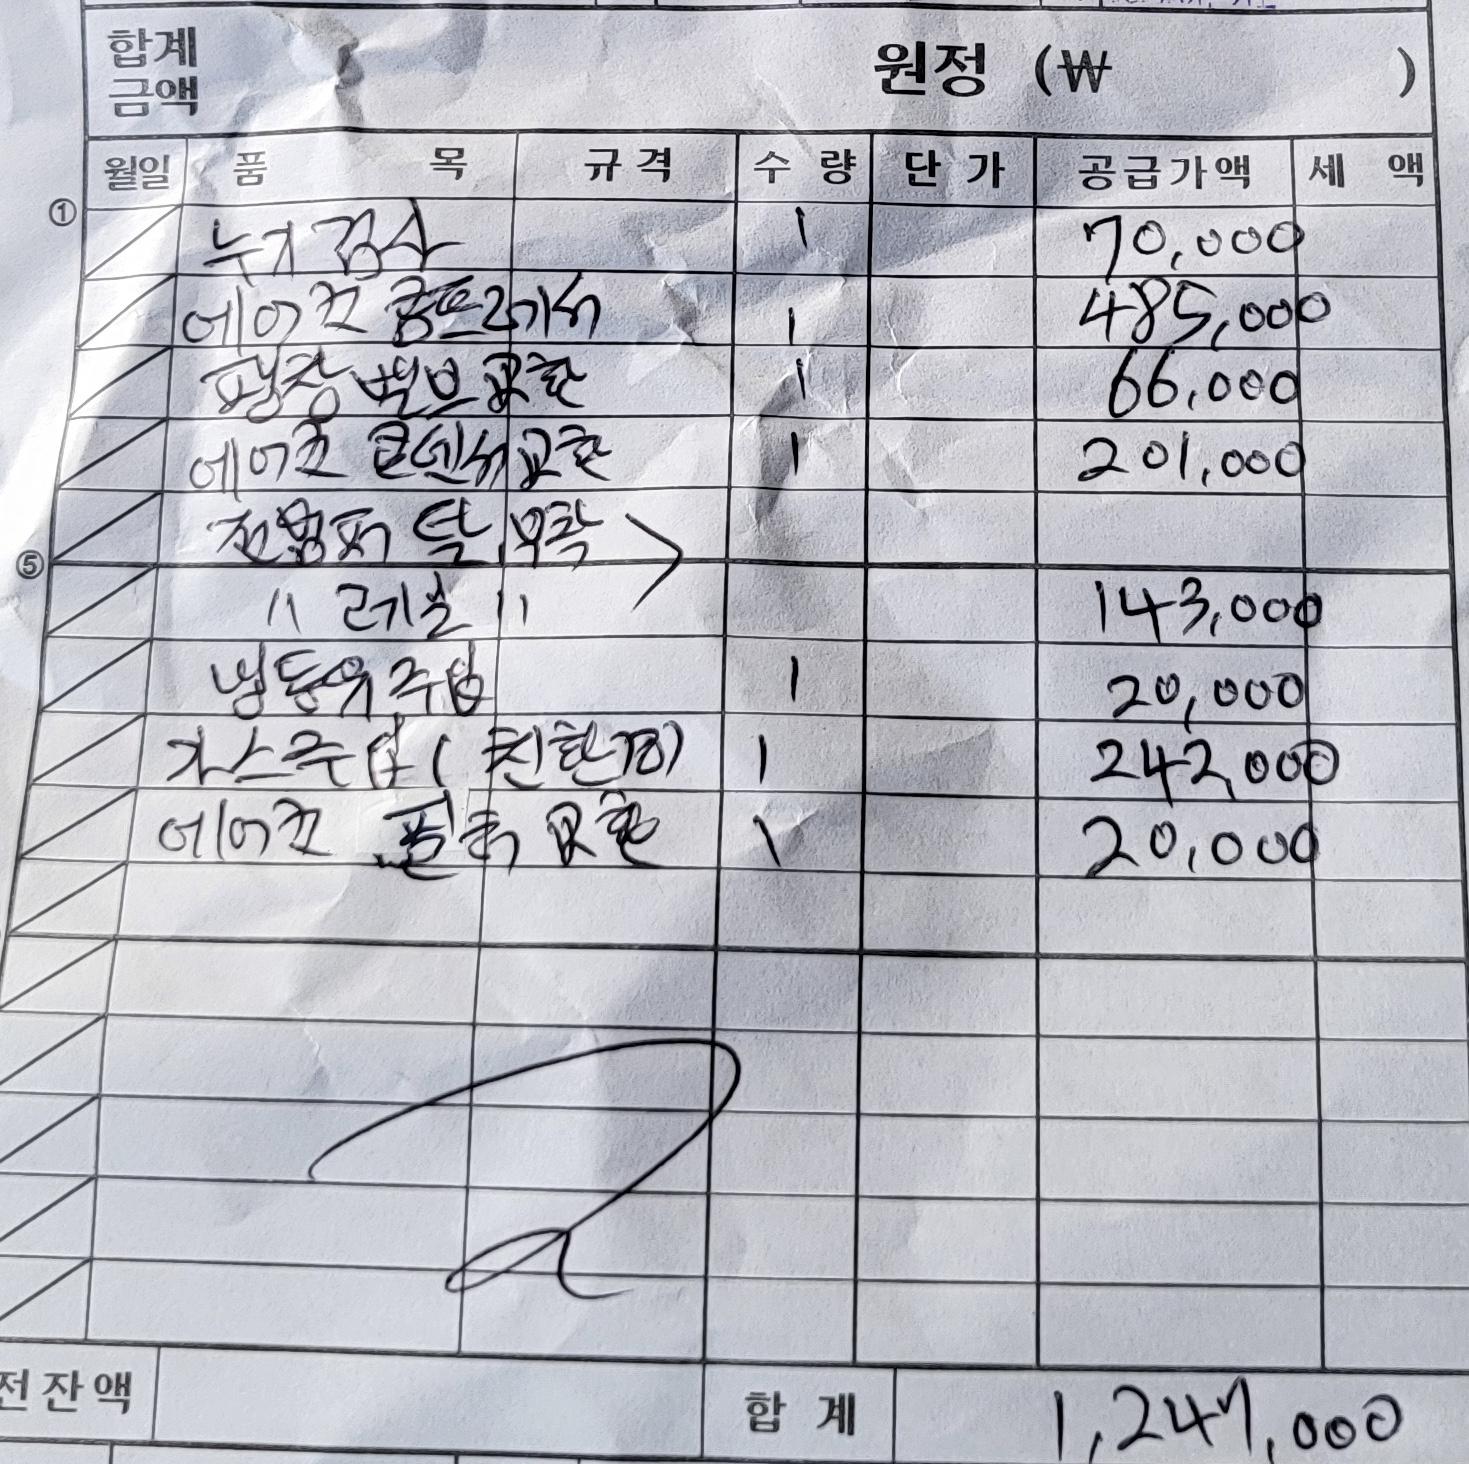 합계
금액 원정 (₩ )
월일 품 목 규 격 수 량 단 가 공급가액 세 액
① 누기 검사 1 70,000
에어컨 콤프레샤 1 485,000
팽창 밸브 교환 1 66,000
에어컨 콘덴샤 교환 1 201,000
전범퍼 탈.부착
⑤ " 레일 " 143,000
냉동유 주입 1 20,000
가스주입 (친환경) 1 242,000
에어컨 필터 교환 1 20,000
전잔액 합 계 1,247,000